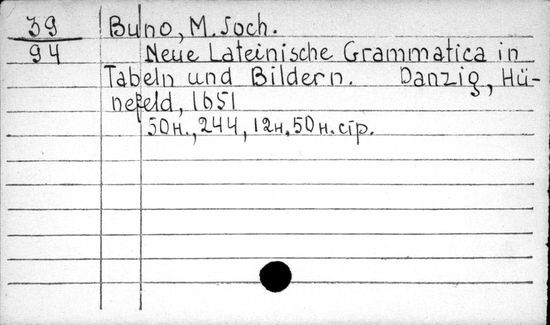 39 Buno, M. Joch.
94 Neue Lateinische Grammatica in
Tabeln und Bildern. Danzig, Hü-
nefeld, 1651
50н., 244, 12н, 50н. cтр.